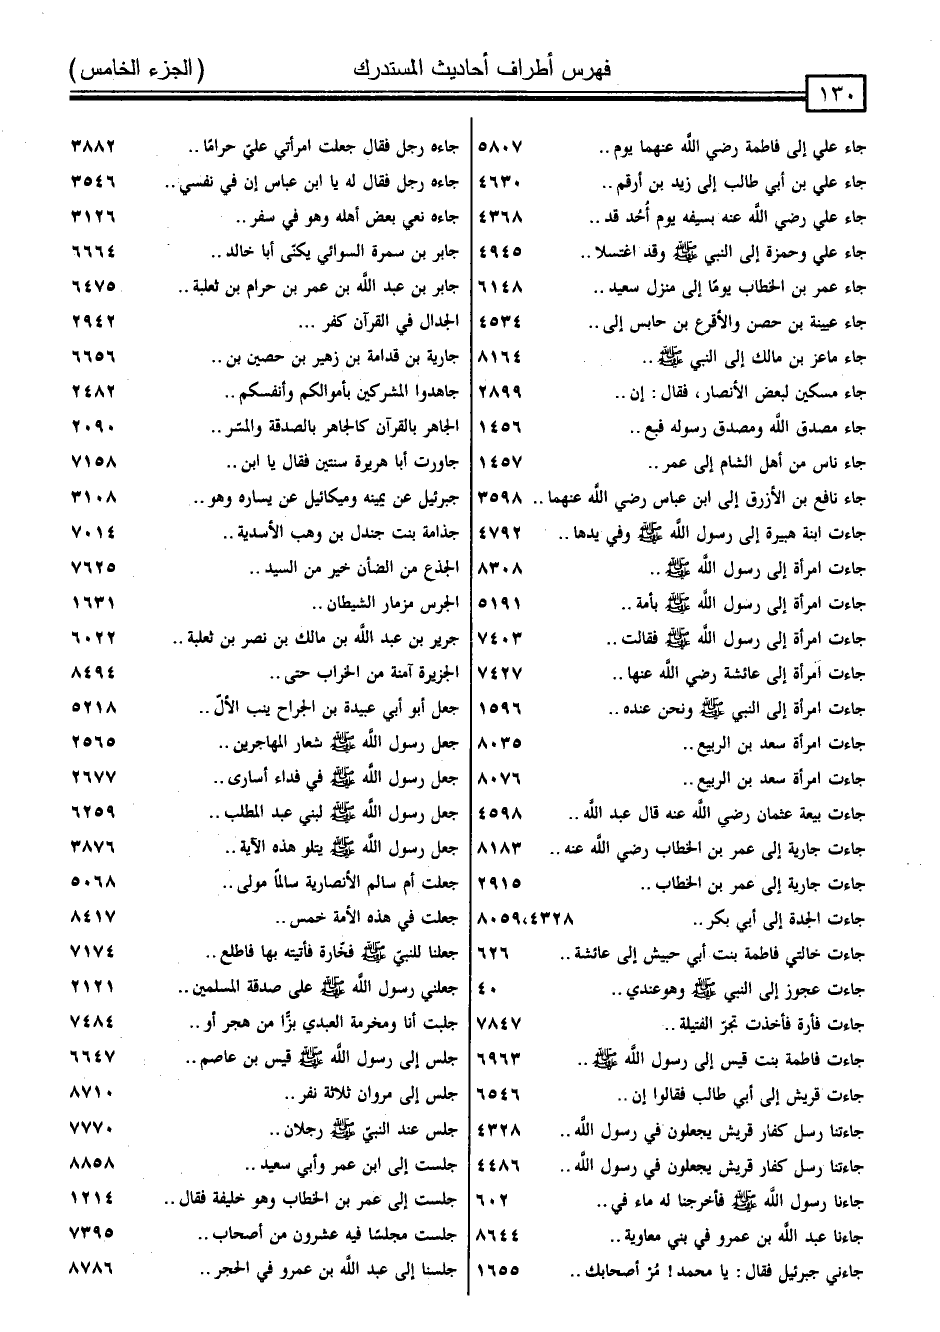 فهرس أطراف أحاديث المستدرك (الجزء الخامس)
١٣٠
جاء علي إلى فاطمة رضي اللَّه عنهما يوم .. ٥٨٠٧
جاء علي بن أبي طالب إلى زيد بن أرقم .. ٤٦٣٠
جاء علي رضي اللَّه عنه بسيفه يوم أُحد قد .. ٤٣٦٨
جاء علي وحمزة إلى النبي ﷺ وقد اغتسلا .. ٤٩٤٥
جاء عمر بن الخطاب يومًا إلى منزل سعيد .. ٦١٤٨
جاء عيينة بن حصن والأقرع بن حابس إلى .. ٤٥٣٤
جاء ماعز بن مالك إلى النبي ﷺ .. ٨١٦٤
جاء مسكين لبعض الأنصار، فقال : إن .. ٢٨٩٩
جاء مصدق اللَّه ومصدق رسوله فبع .. ١٤٥٦
جاء ناس من أهل الشام إلى عمر .. ١٤٥٧
جاء نافع بن الأزرق إلى ابن عباس رضي اللَّه عنهما .. ٣٥٩٨
جاءت ابنة هبيرة إلى رسول اللَّه ﷺ وفي يدها .. ٤٧٩٢
جاءت امرأة إلى رسول اللَّه ﷺ .. ٨٣٠٨
جاءت امرأة إلى رسول اللَّه ﷺ بأمة .. ٥١٩١
جاءت امرأة إلى رسول اللَّه ﷺ فقالت .. ٧٤٠٣
جاءت امرأة إلى عائشة رضي اللَّه عنها .. ٧٤٢٧
جاءت امرأة إلى النبي ﷺ ونحن عنده .. ١٥٩٦
جاءت امرأة سعد بن الربيع .. ٨٠٣٥
جاءت امرأة سعد بن الربيع .. ٨٠٧٦
جاءت بيعة عثمان رضي اللَّه عنه قال عبد اللَّه .. ٤٥٩٨
جاءت جارية إلى عمر بن الخطاب رضي اللَّه عنه .. ٨١٨٣
جاءت جارية إلى عمر بن الخطاب .. ٢٩١٥
جاءت الجدة إلى أبي بكر .. ٨٠٥٩،٤٣٢٨
جاءت خالتي فاطمة بنت أبي حبيش إلى عائشة .. ٦٢٦
جاءت عجوز إلى النبي ﷺ وهوعندي .. ٤٠
جاءت فأرة فأخذت تجرّ الفتيلة .. ٧٨٤٧
جاءت فاطمة بنت قيس إلى رسول اللَّه ﷺ .. ٦٩٦٣
جاءت قريش إلى أبي طالب فقالوا إن .. ٦٥٤٦
جاءتنا رسل كفار قريش يجعلون في رسول اللَّه .. ٤٣٢٨
جاءتنا رسل كفار قريش يجعلون في رسول اللَّه .. ٤٤٨٦
جاءنا رسول اللَّه ﷺ فأخرجنا له ماء في .. ٦٠٢
جاءنا عبد اللَّه بن عمرو في بني معاوية .. ٨٦٤٤
جاءني جبرئيل فقال : يا محمد! مُرْ أصحابك .. ١٦٥٥
جاءه رجل فقال جعلت امرأتي عليّ حرامًا .. ٣٨٨٢
جاءه رجل فقال له يا ابن عباس إن في نفسي .. ٣٥٤٦
جاءه نعي بعض أهله وهو في سفر .. ٣١٢٦
جابر بن سمرة السوائي يكنّى أبا خالد .. ٦٦٦٤
جابر بن عبد اللَّه بن عمر بن حرام بن ثعلبة .. ٦٤٧٥
الجدال في القرآن كفر ... ٢٩٤٢
جارية بن قدامة بن زهير بن حصين بن .. ٦٦٥٦
جاهدوا المشركين بأموالكم وأنفسكم .. ٢٤٨٢
الجاهر بالقرآن كالجاهر بالصدقة والمسّر .. ٢٠٩٠
جاورت أبا هريرة سنتين فقال يا ابن .. ٧١٥٨
جبرئيل عن يمينه وميكائيل عن يساره وهو .. ٣١٠٨
جذامة بنت جندل بن وهب الأسدية .. ٧٠١٤
الجذع من الضأن خير من السيد .. ٧٦٢٥
الجرس مزمار الشيطان .. ١٦٣١
جرير بن عبد اللَّه بن مالك بن نصر بن ثعلبة .. ٦٠٢٢
الجزيرة آمنة من الخراب حتى .. ٨٤٩٤
جعل أبو أبي عبيدة بن الجراح ينب الألّ .. ٥٢١٨
جعل رسول اللَّه ﷺ شعار المهاجرين .. ٢٥٦٥
جعل رسول اللَّه ﷺ في فداء أسارى .. ٢٦٧٧
جعل رسول اللَّه ﷺ لبني عبد المطلب .. ٦٢٥٩
جعل رسول اللَّه ﷺ يتلو هذه الآية .. ٣٨٧٦
جعلت أم سالم الأنصارية سالماً مولى .. ٥٠٦٨
جعلت في هذه الأمة خمس .. ٨٤١٧
جعلنا للنبيّ ﷺ فخّارة فأتيته بها فاطلع .. ٧١٧٤
جعلني رسول اللَّه ﷺ على صدقة المسلمين .. ٢١٢١
جلبت أنا ومخرمة العبدي بزًّا من هجر أو .. ٧٤٨٤
جلس إلى رسول اللَّه ﷺ قيس بن عاصم .. ٦٦٤٧
جلس إلى مروان ثلاثة نفر .. ٨٧١٠
جلس عند النبيّ ﷺ رجلان .. ٧٧٧٠
جلست إلى ابن عمر وأبي سعيد .. ٨٨٥٨
جلست إلى عمر بن الخطاب وهو خليفة فقال .. ١٢١٤
جلست مجلسًا فيه عشرون من أصحاب .. ٧٣٩٥
جلسنا إلى عبد اللَّه بن عمرو في الحجر .. ٨٧٨٦